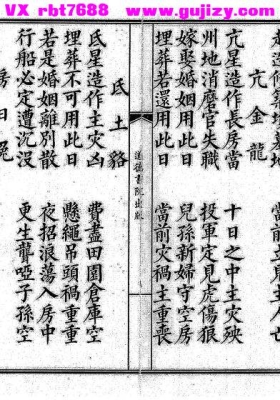 VX rbt7688 www.gujizy.com
亢金龍
亢星造作長房當 十日之中主災殃
州地消磨官失職 投軍定見虎傷狼
嫁娶婚姻用此日 兒孫新婦守空房
埋葬若還用此日 當前災禍主重喪
道德書院出版
氐土貉
氐星造作主災凶 費盡田園倉庫空
埋葬不可用此日 懸繩吊頭禍重重
若是婚姻離別散 夜招浪蕩入房中
行船必定遭沉沒 更生聾啞子孫空
房日兔